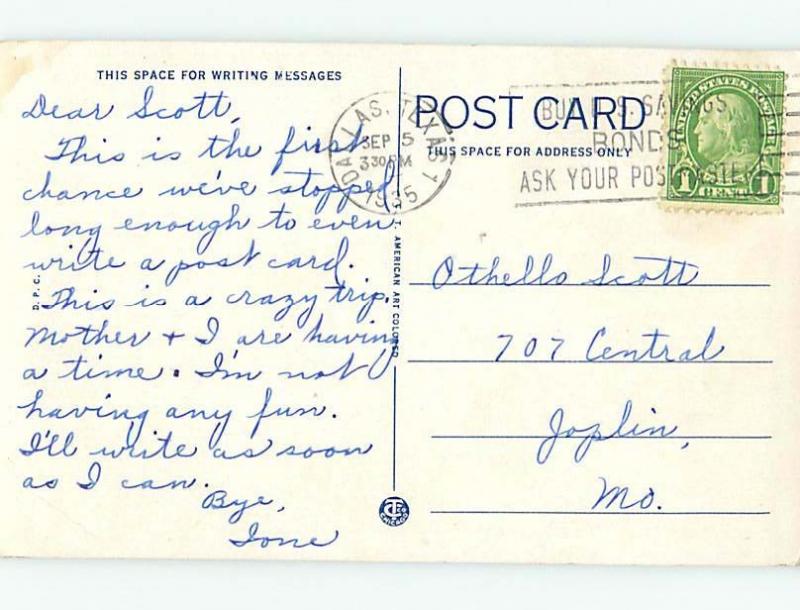 THIS SPACE FOR WRITING MESSAGES
Dear Scott,
This is the first
chance we've stopped
long enough to even
write a post card.
This is a crazy trip.
Mother + I are having
a time. I'm not
having any fun.
I'll write as soon
as I can.
Bye,
Ione
D. P. C.
C. T. AMERICAN ART COLORED
CHICAGO
DALLAS, TEXAS 1
SEP 5
3 30 PM
1935
POST CARD
THIS SPACE FOR ADDRESS ONLY
BUY U.S. SAVINGS
BONDS
ASK YOUR POSTMASTER
UNITED STATES POSTAGE
1 CENT 1
Othello Scott
707 Central
Joplin,
Mo.